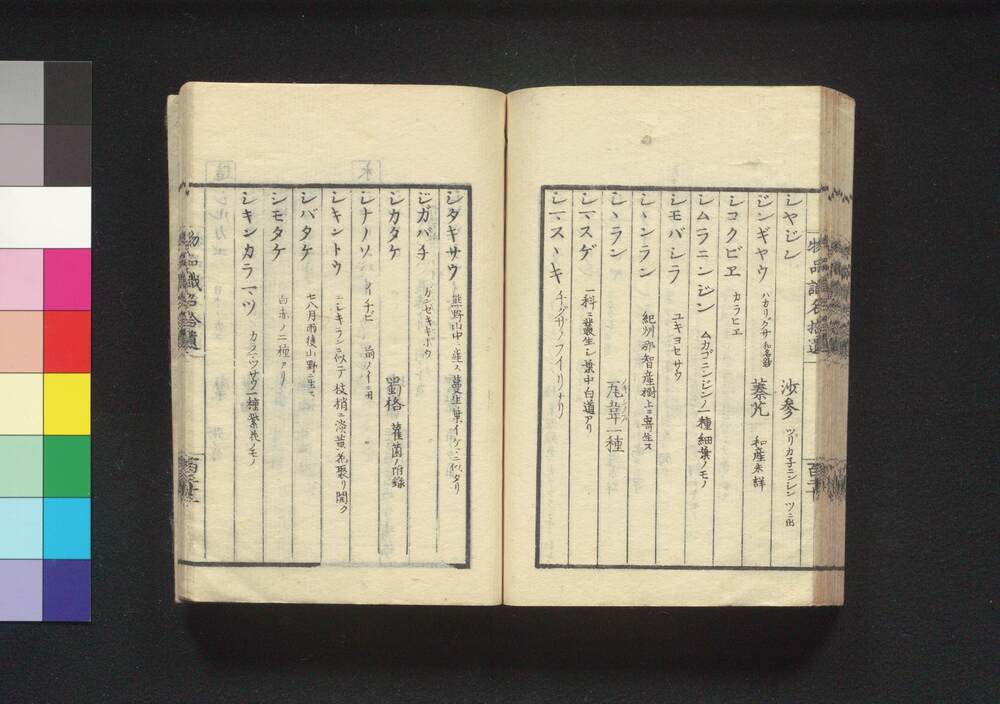 シヤジン 沙參 ツリカ子ニンジン ツニ出
ジンギヤウ ハカリグサ 和名鈔 蓁艽 和産未詳
シコクビヱ カラヒエ
シムラニンジン ムカゴニンジンノ一種細葉ノモノ
シモバシラ ユキヨセサウ
シヽンラン 紀州那智産樹上ニ寄生ス
シヽラン 一種
シマスゲ 一科ニ叢生シ葉中白道アリ
シマスヽキ チグサノフイリナリ
物品識名拾遺
シダキサウ 熊野山中ニ産ス蔓生葉イケマニ似タリ
ジガバチ
シカタケ 䕞菌ノ附錄
シナノソバ イチビ 前ノイニ出
シキントウ ニシキランニ似テ枝梢ニ淡黄花聚リ開ク
シバタケ 七八月雨後山野ニ生ス
シモタケ 白赤ノ二種アリ
シキンカラマツ カラマツサウノ一種紫花ノモノ
物品識名拾遺